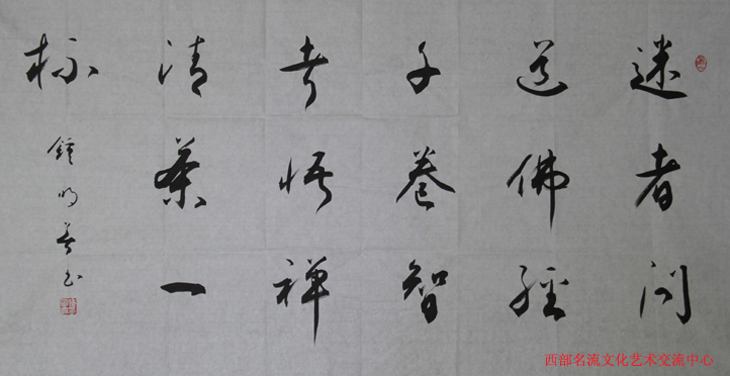 迷者问
道佛經
千卷智
者悟禅
清茶一
杯
鍾明善书
西部名流文化艺术交流中心